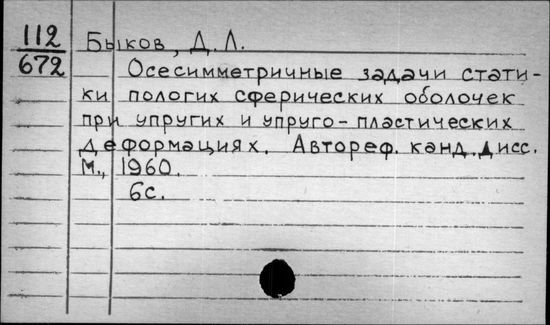 112 Быков, Д. Л.
672 Осесимметричные задачи стати-
ки пологих сферических оболочек
при упругих и упруго-пластических
деформациях. Автореф. канд. дисс.
М., 1960.
6с.